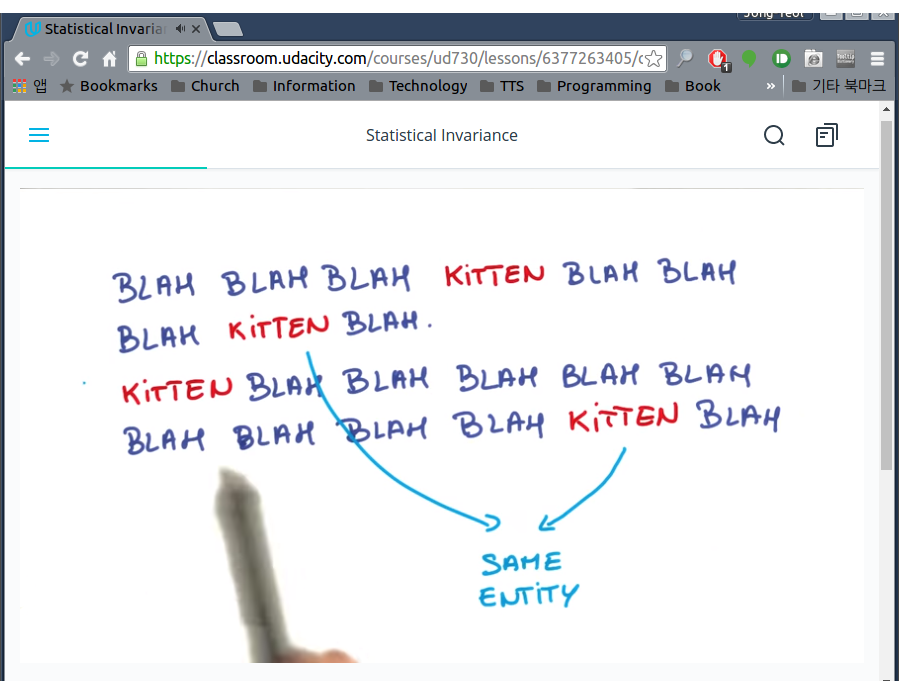 Statistical Invaria
https://classroom.udacity.com/courses/ud730/lessons/6377263405/c
1
앱 Bookmarks Church Information Technology TTS Programming Book » 기타 북마크
Statistical Invariance
BLAH BLAH BLAH KiTTEN BLAH BLAH
BLAH KiTTEN BLAH.
KiTTEN BLAH BLAH BLAH BLAH BLAH
BLAH BLAH BLAH BLAH KiTTEN BLAH
SAME
ENTiTY